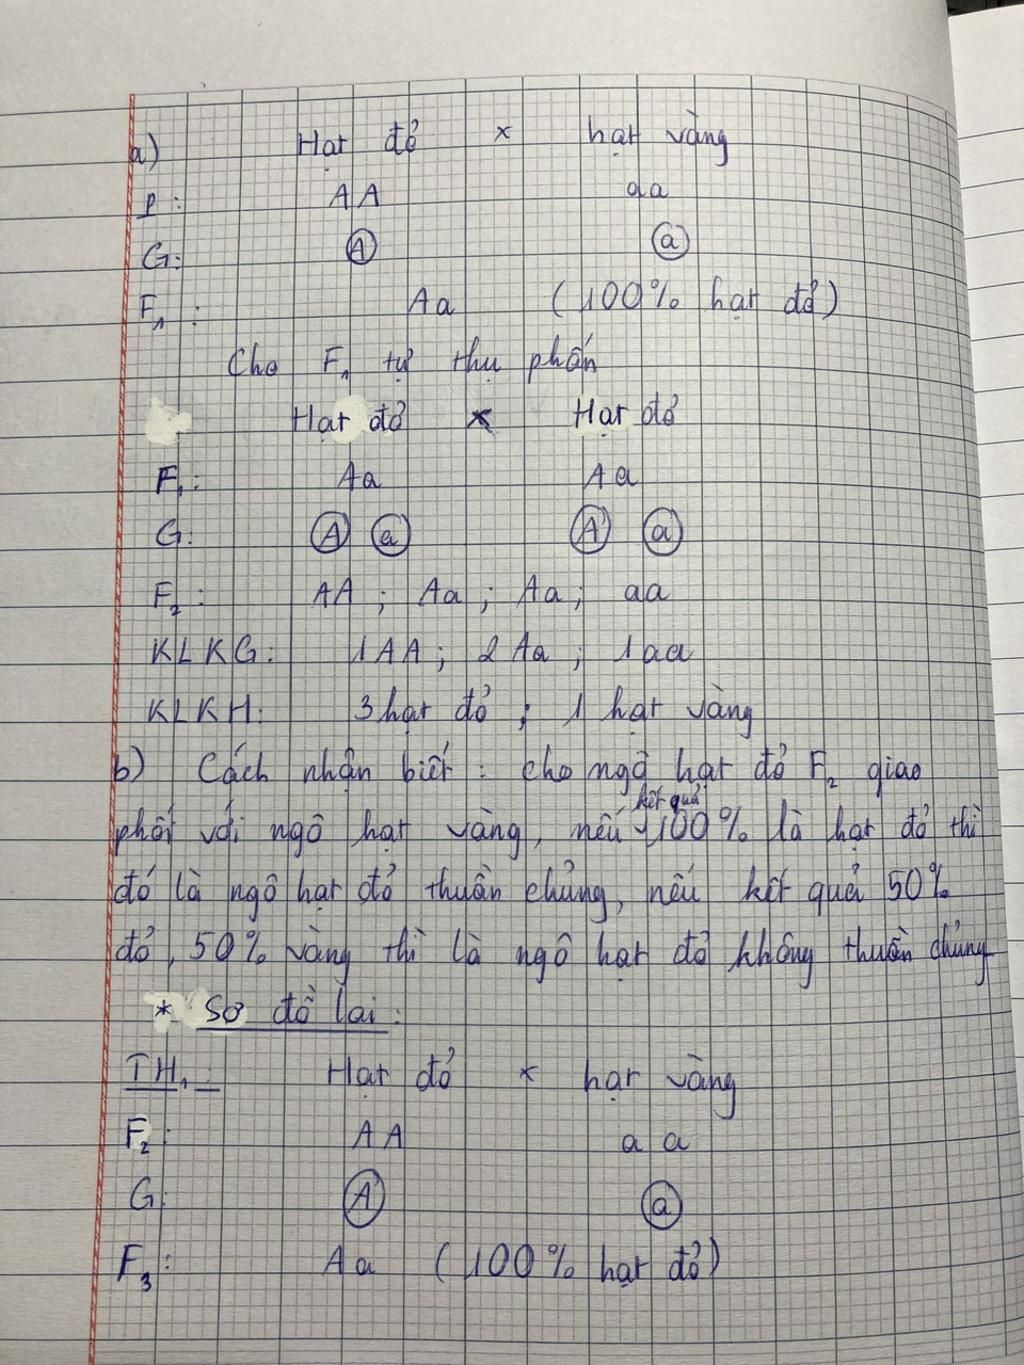 a) Hạt đỏ x hạt vàng
P: AA aa
G: A a
F1: Aa (100% hạt đỏ)
Cho F1 tự thụ phấn
Hạt đỏ x Hạt đỏ
F1: Aa Aa
G: A a A a
F2: AA; Aa; Aa; aa
KLKG: 1AA; 2Aa; 1aa
KLKH: 3 hạt đỏ; 1 hạt vàng
b) Cách nhận biết: cho ngô hạt đỏ F2 giao
phối với ngô hạt vàng, nếu kết quả 100% là hạt đỏ thì
đó là ngô hạt đỏ thuần chủng, nếu kết quả 50%
đỏ, 50% vàng thì là ngô hạt đỏ không thuần chủng
* Sơ đồ lai:
TH1: Hạt đỏ x hạt vàng
F2: AA aa
G: A a
F3: Aa (100% hạt đỏ)